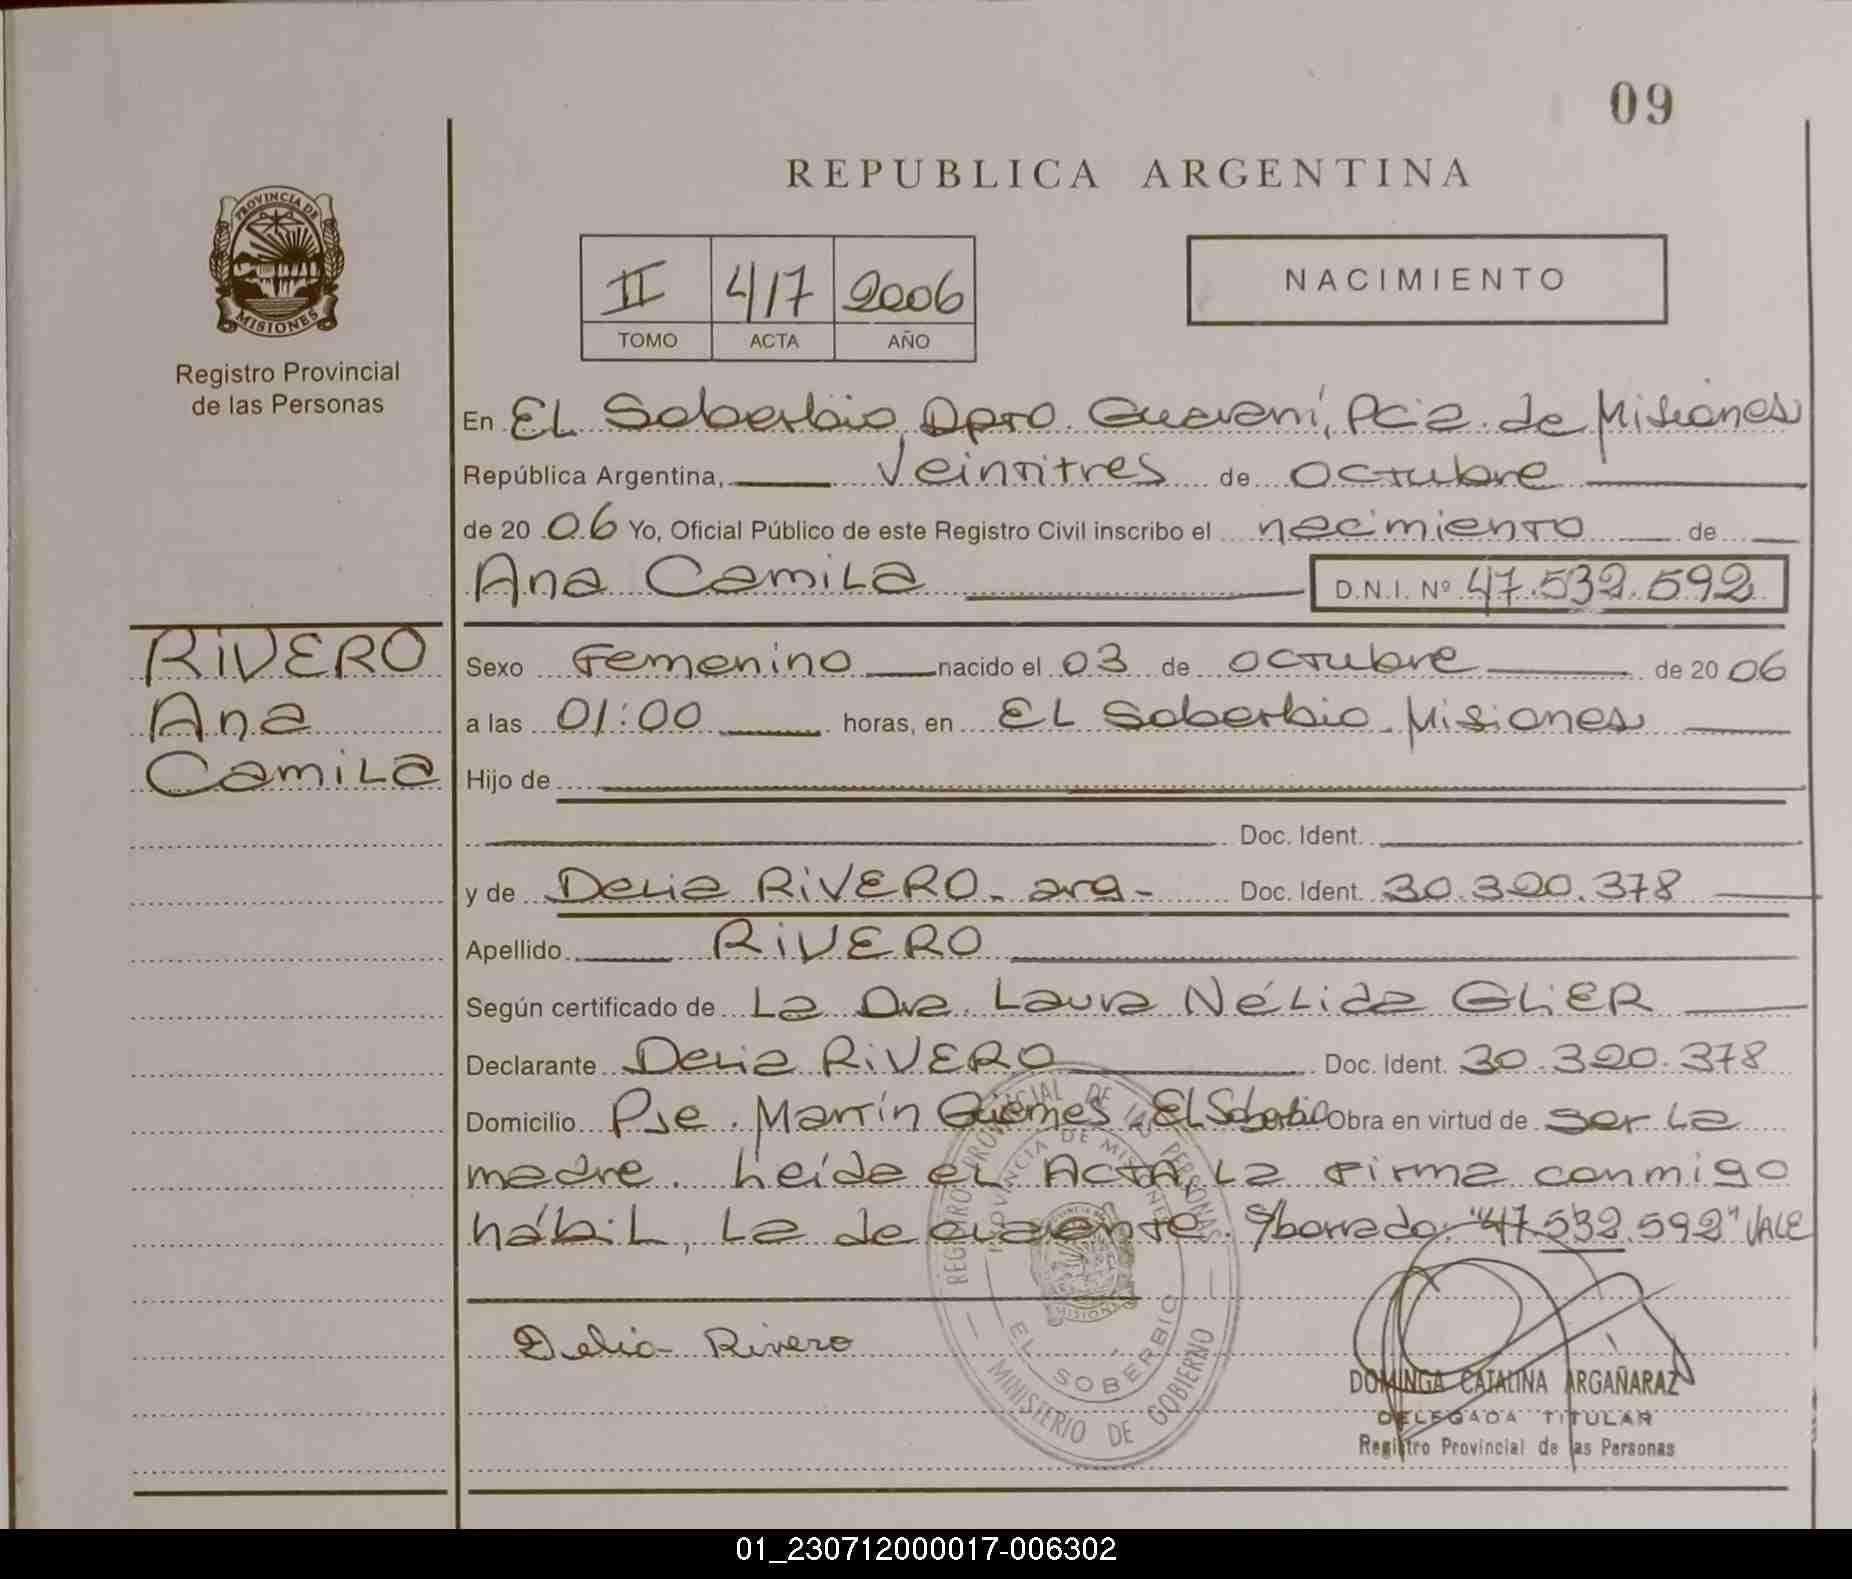 09
REPUBLICA ARGENTINA
PROVINCIA DE
MISIONES
Registro Provincial
de las Personas
II 417 2006
TOMO ACTA AÑO
NACIMIENTO
En EL Soberbio, Dpto. Guaraní, Pcia. de Misiones
República Argentina, Veintitres de octubre
de 2006 Yo, Oficial Público de este Registro Civil inscribo el nacimiento de
Ana Camila D.N.I. Nº 47.532.592
RIVERO
Ana
Camila
Sexo Femenino nacido el 03 de octubre de 2006
a las 01:00 horas, en EL Soberbio. Misiones
Hijo de
Doc. Ident.
y de Delia RIVERO. arg. Doc. Ident. 30.320.378
Apellido RIVERO
Según certificado de La Dra. Laura Nélida GLIER
Declarante Delia RIVERO Doc. Ident. 30.320.378
Domicilio Pje. Martín Güemes. El Soberbio Obra en virtud de ser la
madre. Leída el Acta, La firma conmigo
hábil, La declarante. s/borrado: "47.532.592" VALE
Delia Rivero
REGISTRO PROVINCIAL DE LAS PERSONAS
PROVINCIA DE MISIONES
MISIONES
EL SOBERBIO
MINISTERIO DE GOBIERNO
DOMINGA CATALINA ARGAÑARAZ
DELEGADA TITULAR
Registro Provincial de las Personas
01_230712000017-006302